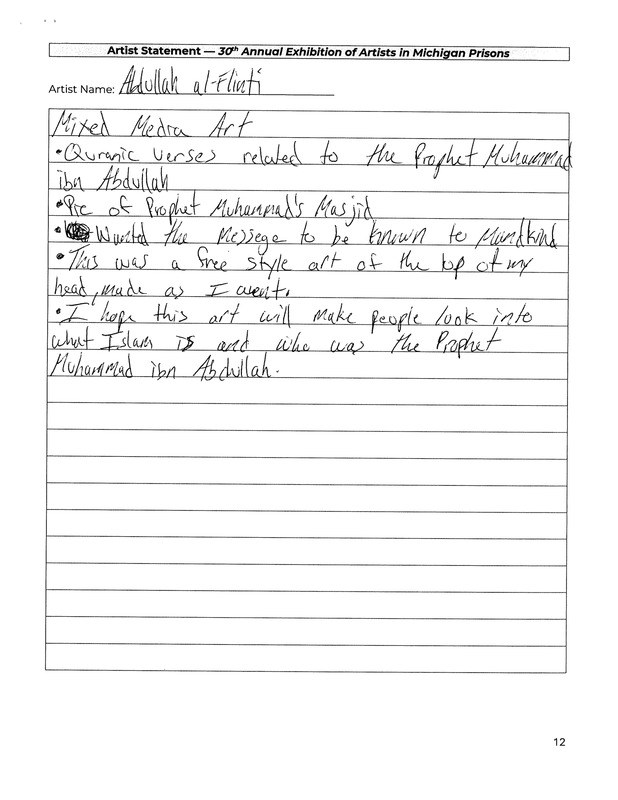 Artist Statement — 30th Annual Exhibition of Artists in Michigan Prisons
Artist Name: Abdullah al-Flinti
Mixed Media Art
•Quranic verses related to the Prophet Muhammad
ibn Abdullah
•Pic of Prophet Muhammad's Masjid
• Wanted the Messege to be known to Mandkind
•This was a free style art of the top of my
head, made as I went.
•I hope this art will make people look into
what Islam is and who was the Prophet
Muhammad ibn Abdullah.
12